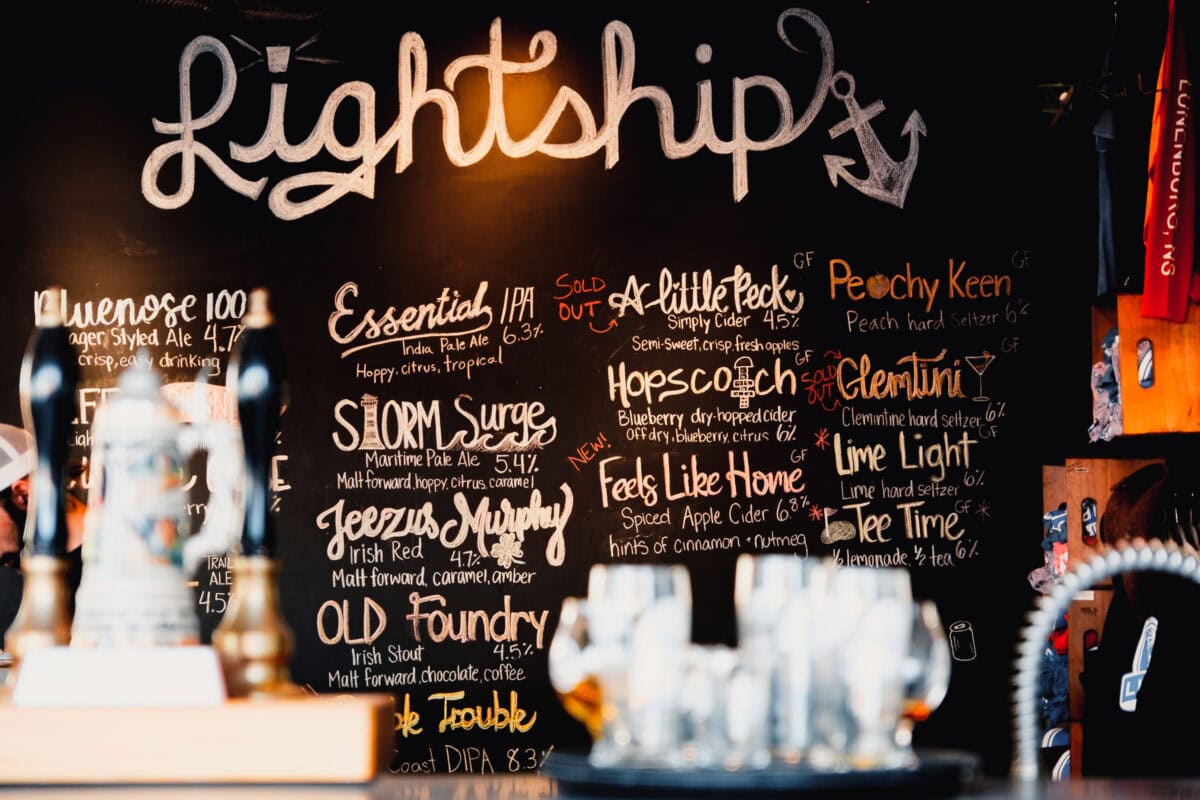 Lightship
LUNENBURG, NS
Bluenose 100
Lager Styled Ale 4.7%
crisp, easy drinking
TRAIL
ALE
4.5
Essential IPA
India Pale Ale 6.3%
Hoppy, citrus, tropical
STORM Surge
Maritime Pale Ale 5.4%
Malt forward, hoppy, citrus, caramel
Jeezus Murphy
Irish Red 4.7%
Malt forward, caramel, amber
OLD Foundry
Irish Stout 4.5%
Malt forward, chocolate, coffee
Trouble
Coast DIPA 8.3%
SOLD
OUT
A Little Peck GF
Simply Cider 4.5%
Semi-Sweet, crisp, fresh apples
Hopscotch GF
Blueberry dry-hopped cider
Off dry, blueberry, citrus 6%
NEW!
Feels Like Home GF
Spiced Apple Cider 6.8%
hints of cinnamon + nutmeg
Peachy Keen GF
Peach hard Seltzer 6%
SOLD
OUT
Clemtini GF
Clemintine hard seltzer 6%
Lime Light GF
Lime hard seltzer 6%
Tee Time GF
½ lemonade, ½ tea 6%